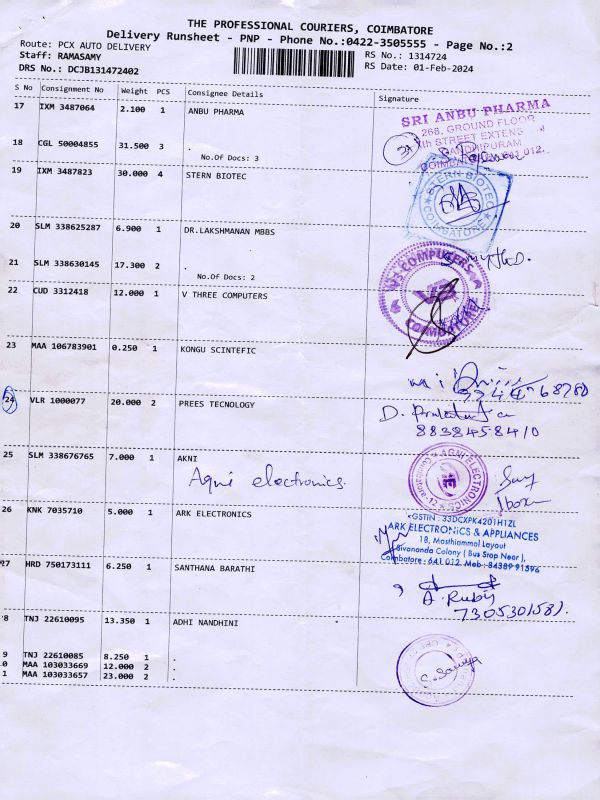 THE PROFESSIONAL COURIERS, COIMBATORE
Delivery Runsheet - PNP - Phone No.:0422-3505555 - Page No.:2
Route: PCX AUTO DELIVERY
RS No.: 1314724
Staff: RAMASAMY
RS Date: 01-Feb-2024
DRS No.: DCJB131472402
S No Consignment No Weight PCS Consignee Details Signature
17 IXM 3487064 2.100 1 ANBU PHARMA
SRI ANBU PHARMA
268, GROUND FLOOR
STREET EXTENS
GANDHIPURAM
18 CGL 50004855 31.500 3 .
No.Of Docs: 3
19 IXM 3487823 30.000 4 STERN BIOTEC
STERN BIOTEC
COIMBATORE
20 SLM 338625287 6.900 1 DR.LAKSHMANAN MBBS
21 SLM 338630145 17.300 2 .
No.Of Docs: 2
22 CUD 3312418 12.000 1 V THREE COMPUTERS
COMPUTERS
23 MAA 106783901 0.250 1 KONGU SCINTEFIC
24 VLR 1000077 20.000 2 PREES TECNOLOGY
8838458410
25 SLM 338676765 7.000 1 AKNI
Agni electronics.
AGNI ELECTRONICS
1 box
26 KNK 7035710 5.000 1 ARK ELECTRONICS
GSTIN : 33DCXPK4201H1ZL
ARK ELECTRONICS & APPLIANCES
18, Masthiammal Layout
Sivananda Colony ( Bus Stop Near ),
Coimbatore - 641 012. Mob : 84389 91596
27 HRD 750173111 6.250 1 SANTHANA BARATHI
A. Ruby
7305301581.
8 TNJ 22610095 13.350 1 ADHI NANDHINI
9 TNJ 22610085 8.250 1 .
0 MAA 103033669 12.000 2 .
1 MAA 103033657 23.000 2 .